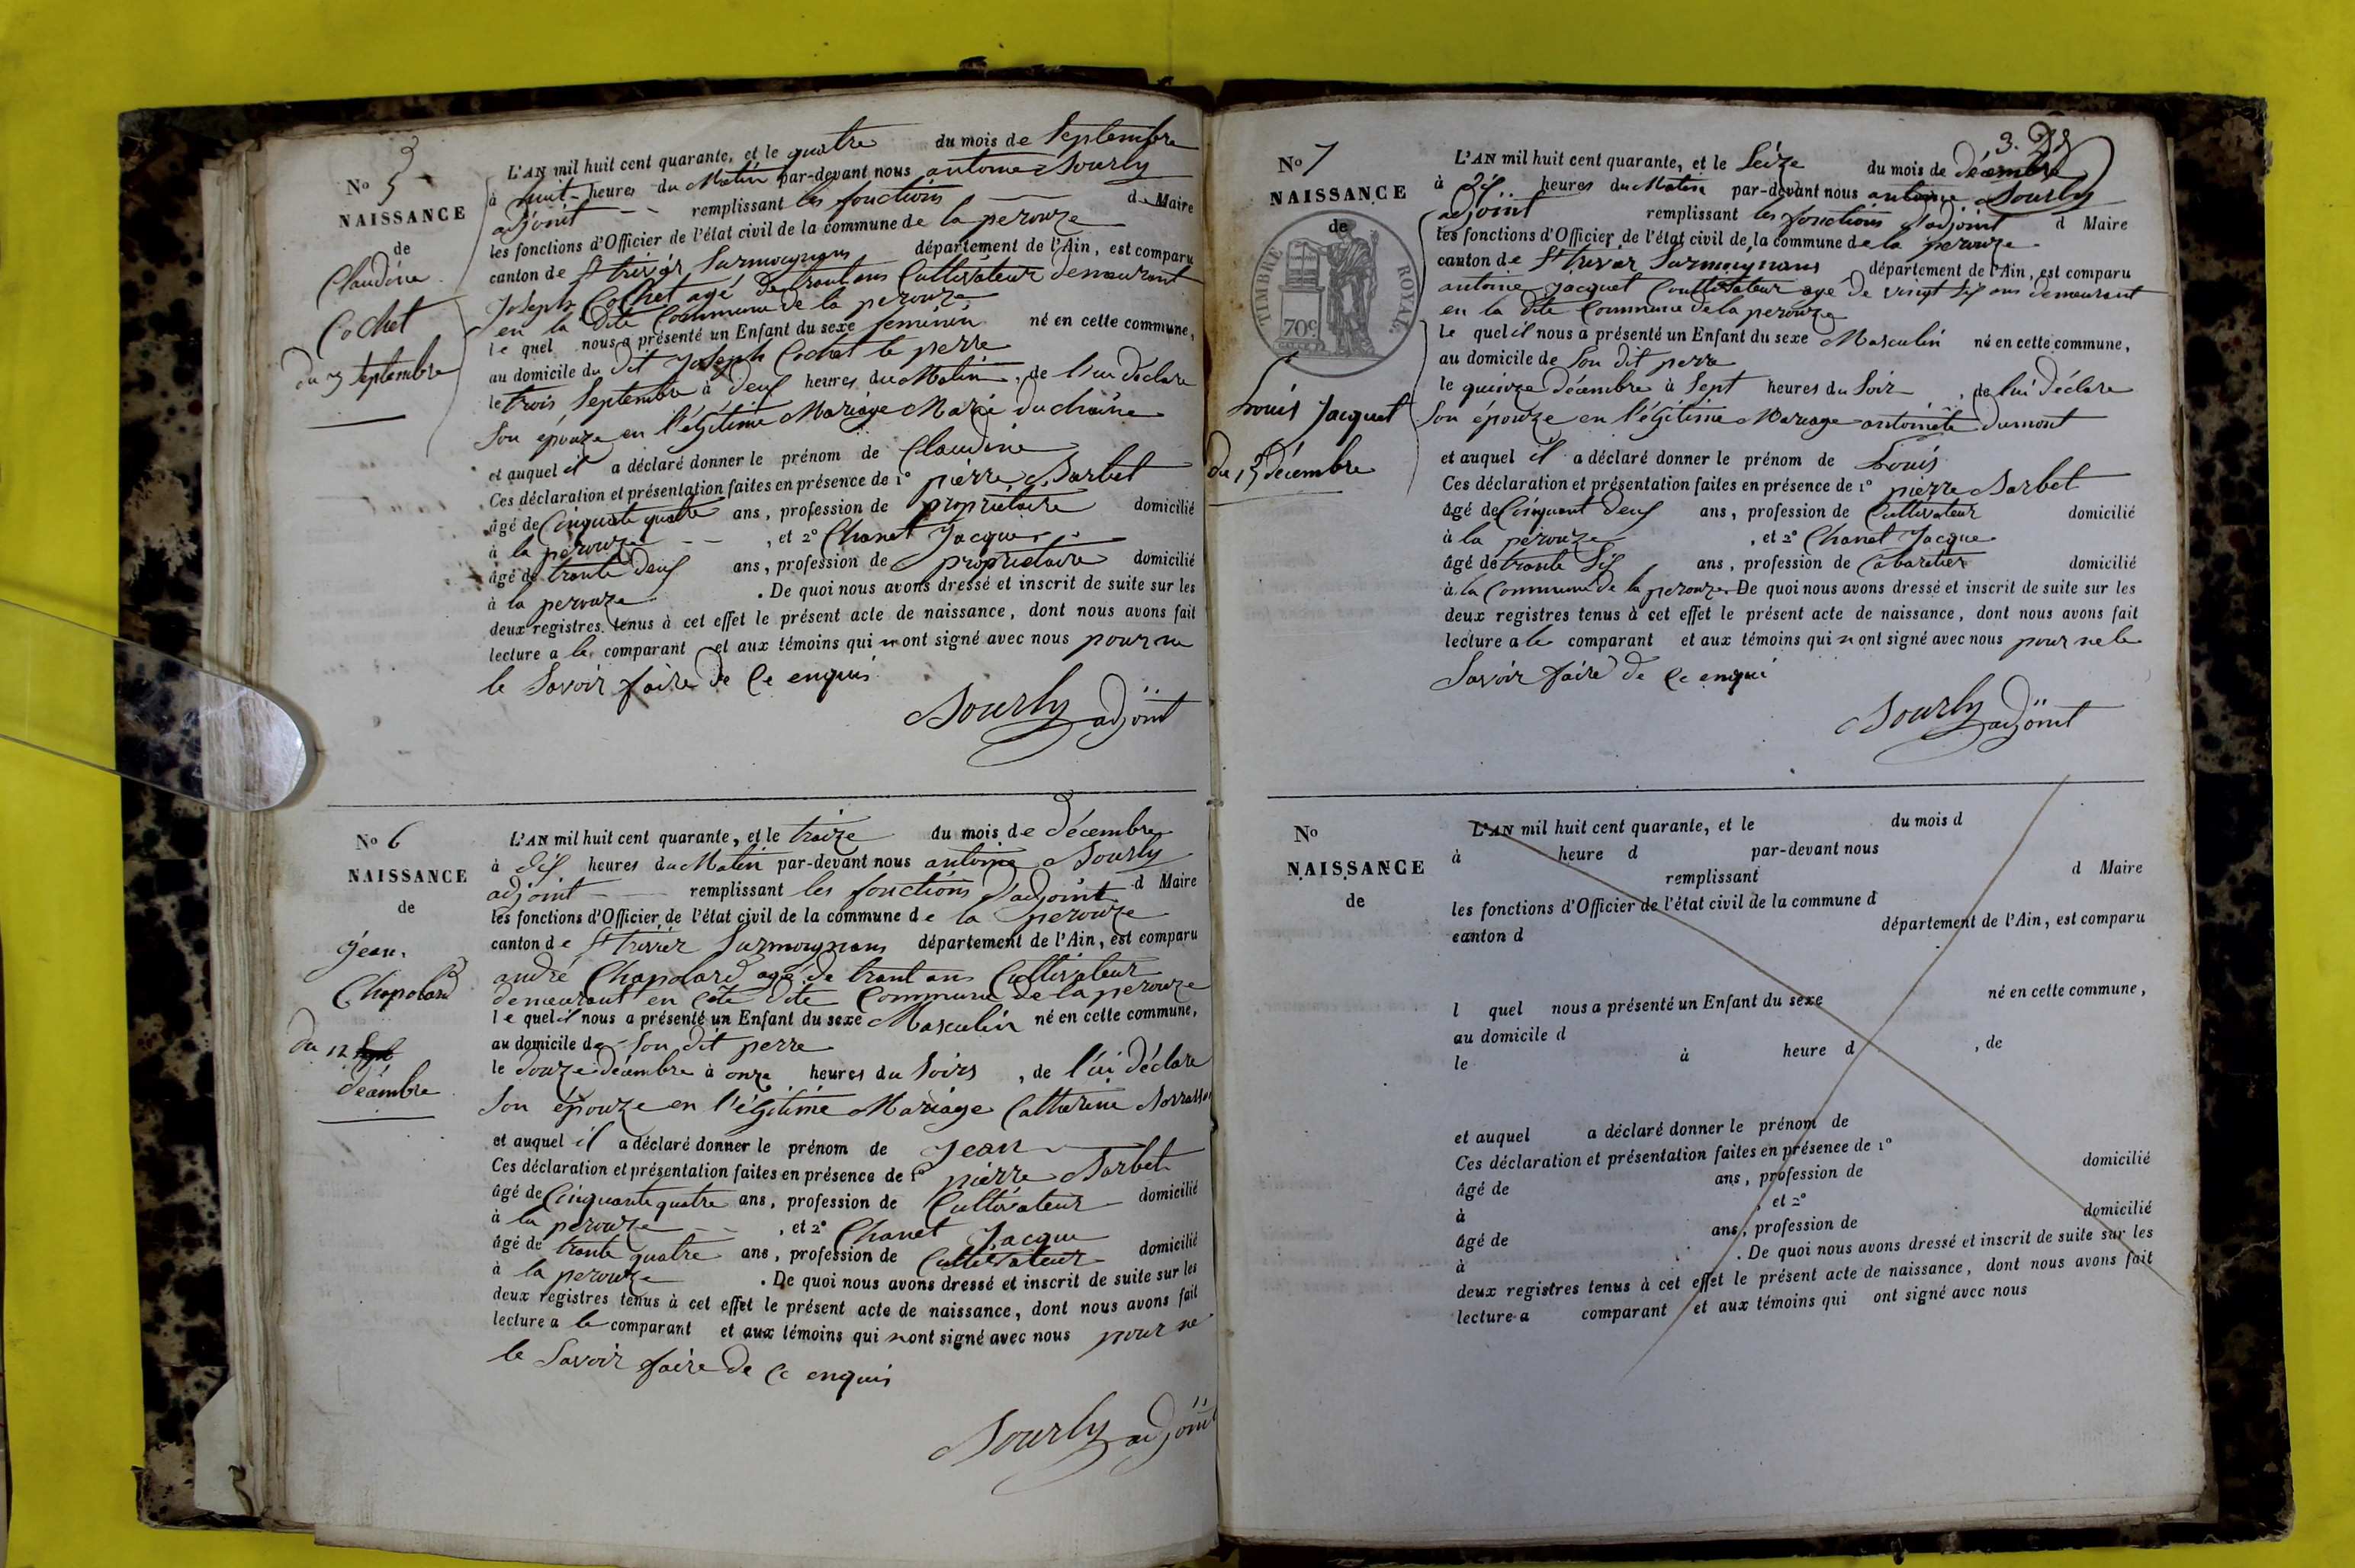 No 5
NAISSANCE
de
Claudine
Cochet
du 3 Septembre
L'AN mil huit cent quarante, et le quatre du mois de Septembre
à huit heures du Matin par-devant nous antoine Sourly
adjoint remplissant les fonctions d Maire
les fonctions d'Officier de l'état civil de la commune de la perouze
canton de St trivier Surmoignans département de l'Ain, est comparu
Joseph Cochet agé de trant ans Cultivateur demeurant
en la dite Commune de la perouze
le quel nous a présenté un Enfant du sexe feminin né en cette commune,
au domicile du dit Joseph Cochet le perre
le trois Septembre à deux heures du Matin, de lui déclare
Son épouze en l'égitime Mariage Marie duchaine
et auquel il a déclaré donner le prénom de Claudine
Ces déclaration et présentation faites en présence de 1° pierre Sarbet
âgé de Cinquante quatre ans, profession de proprietaire domicilié
à la perouze, et 2° Chanet Jacque
âgé de trante deux ans, profession de proprietaire domicilié
à la perouze. De quoi nous avons dressé et inscrit de suite sur les
deux registres tenus à cet effet le présent acte de naissance, dont nous avons fait
lecture a le comparant et aux témoins qui n ont signé avec nous pour ne
le Savoir faire de Ce enquis
Sourly adjoint
No 6
NAISSANCE
de
Jean
Chapolard
du 12
décembre
L'AN mil huit cent quarante, et le traize du mois de décembre
à dix heures du Matin par-devant nous antoine Sourly
adjoint remplissant les fonctions d'adjoint d Maire
les fonctions d'Officier de l'état civil de la commune de la perouze
canton de St trivier Surmoignans département de l'Ain, est comparu
andré Chapolard agé de trant ans Cultivateur
demeurant en cète dite Commune de la perouze
le quel il nous a présenté un Enfant du sexe Masculin né en cette commune,
au domicile de Son dit perre
le douze décembre à onze heures du Soirs, de lui déclare
Son épouze en l'égitime Mariage Catherine
et auquel il a déclaré donner le prénom de Jean
Ces déclaration et présentation faites en présence de 1° pierre Sarbet
âgé de Cinquante quatre ans, profession de Cultivateur domicilié
à la perouze, et 2° Chanet Jacque
âgé de trante quatre ans, profession de Cultivateur domicilié
à la perouze. De quoi nous avons dressé et inscrit de suite sur les
deux registres tenus à cet effet le présent acte de naissance, dont nous avons fait
lecture a le comparant et aux témoins qui n ont signé avec nous pour ne
le Savoir faire de Ce enquis
Sourly adjoint
3.
No 7
NAISSANCE
de
TIMBRE ROYAL.
70c
Louis Jacquet
du 15 décembre
L'AN mil huit cent quarante, et le Seize du mois de décembre
à dix heures du Matin par-devant nous antoine Sourly
adjoint remplissant les fonctions d'adjoint d Maire
les fonctions d'Officier de l'état civil de la commune de la perouze
canton de St trivier Surmoignans département de l'Ain, est comparu
antoine Jacquet Coultivateur agé de vingt six ans demeurant
en la dite Commune de la perouze
le quel il nous a présenté un Enfant du sexe Masculin né en cette commune,
au domicile de Son dit perre
le quinze décembre à Sept heures du Soir, de lui déclare
Son épouze en l'égitime Mariage antoinète dumont
et auquel il a déclaré donner le prénom de Louis
Ces déclaration et présentation faites en présence de 1° pierre Sarbet
âgé de Cinquant deux ans, profession de Cultivateur domicilié
à la perouze, et 2° Chanet Jacque
âgé de trante Six ans, profession de Cabaretier domicilié
à la Commune de la perouze. De quoi nous avons dressé et inscrit de suite sur les
deux registres tenus à cet effet le présent acte de naissance, dont nous avons fait
lecture a le comparant et aux témoins qui n ont signé avec nous pour ne le
Savoir faire de Ce enqui
Sourly adjoint
No
NAISSANCE
de
L'AN mil huit cent quarante, et le du mois d
à heure d par-devant nous
remplissant d Maire
les fonctions d'Officier de l'état civil de la commune d
canton d département de l'Ain, est comparu
l quel nous a présenté un Enfant du sexe né en cette commune,
au domicile d
le à heure d , de
et auquel a déclaré donner le prénom de
Ces déclaration et présentation faites en présence de 1°
âgé de ans, profession de domicilié
à , et 2°
âgé de ans, profession de domicilié
à . De quoi nous avons dressé et inscrit de suite sur les
deux registres tenus à cet effet le présent acte de naissance, dont nous avons fait
lecture a comparant et aux témoins qui ont signé avec nous